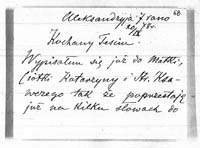 68
Aleksandryja 7 rano
Kochany Tesiu.
Wypisałem się już do Matki,
Ciotki Katarzyny i St.
tak że poprzestaję
już na kilku słowach do